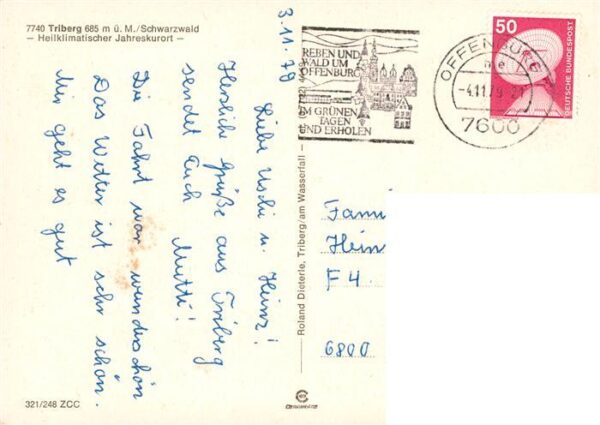 7740 Triberg 685 m ü. M./Schwarzwald
— Heilklimatischer Jahreskurort —
3.11.79
Liebe Uschi u. Heinz!
Herzliche Grüße aus Triberg
sendet Euch Mutti!
Die Fahrt war wunderschön
Das Wetter ist sehr schön.
Mir geht es gut
321/248 ZCC
Roland Dieterle, Triberg/am Wasserfall
REBEN UND
WALD UM
OFFENBURG
IM GRÜNEN
TAGEN
UND ERHOLEN
OFFENBURG
-4.11.79-21
7600
50
DEUTSCHE BUNDESPOST
Fami
Hein
F4.
6800